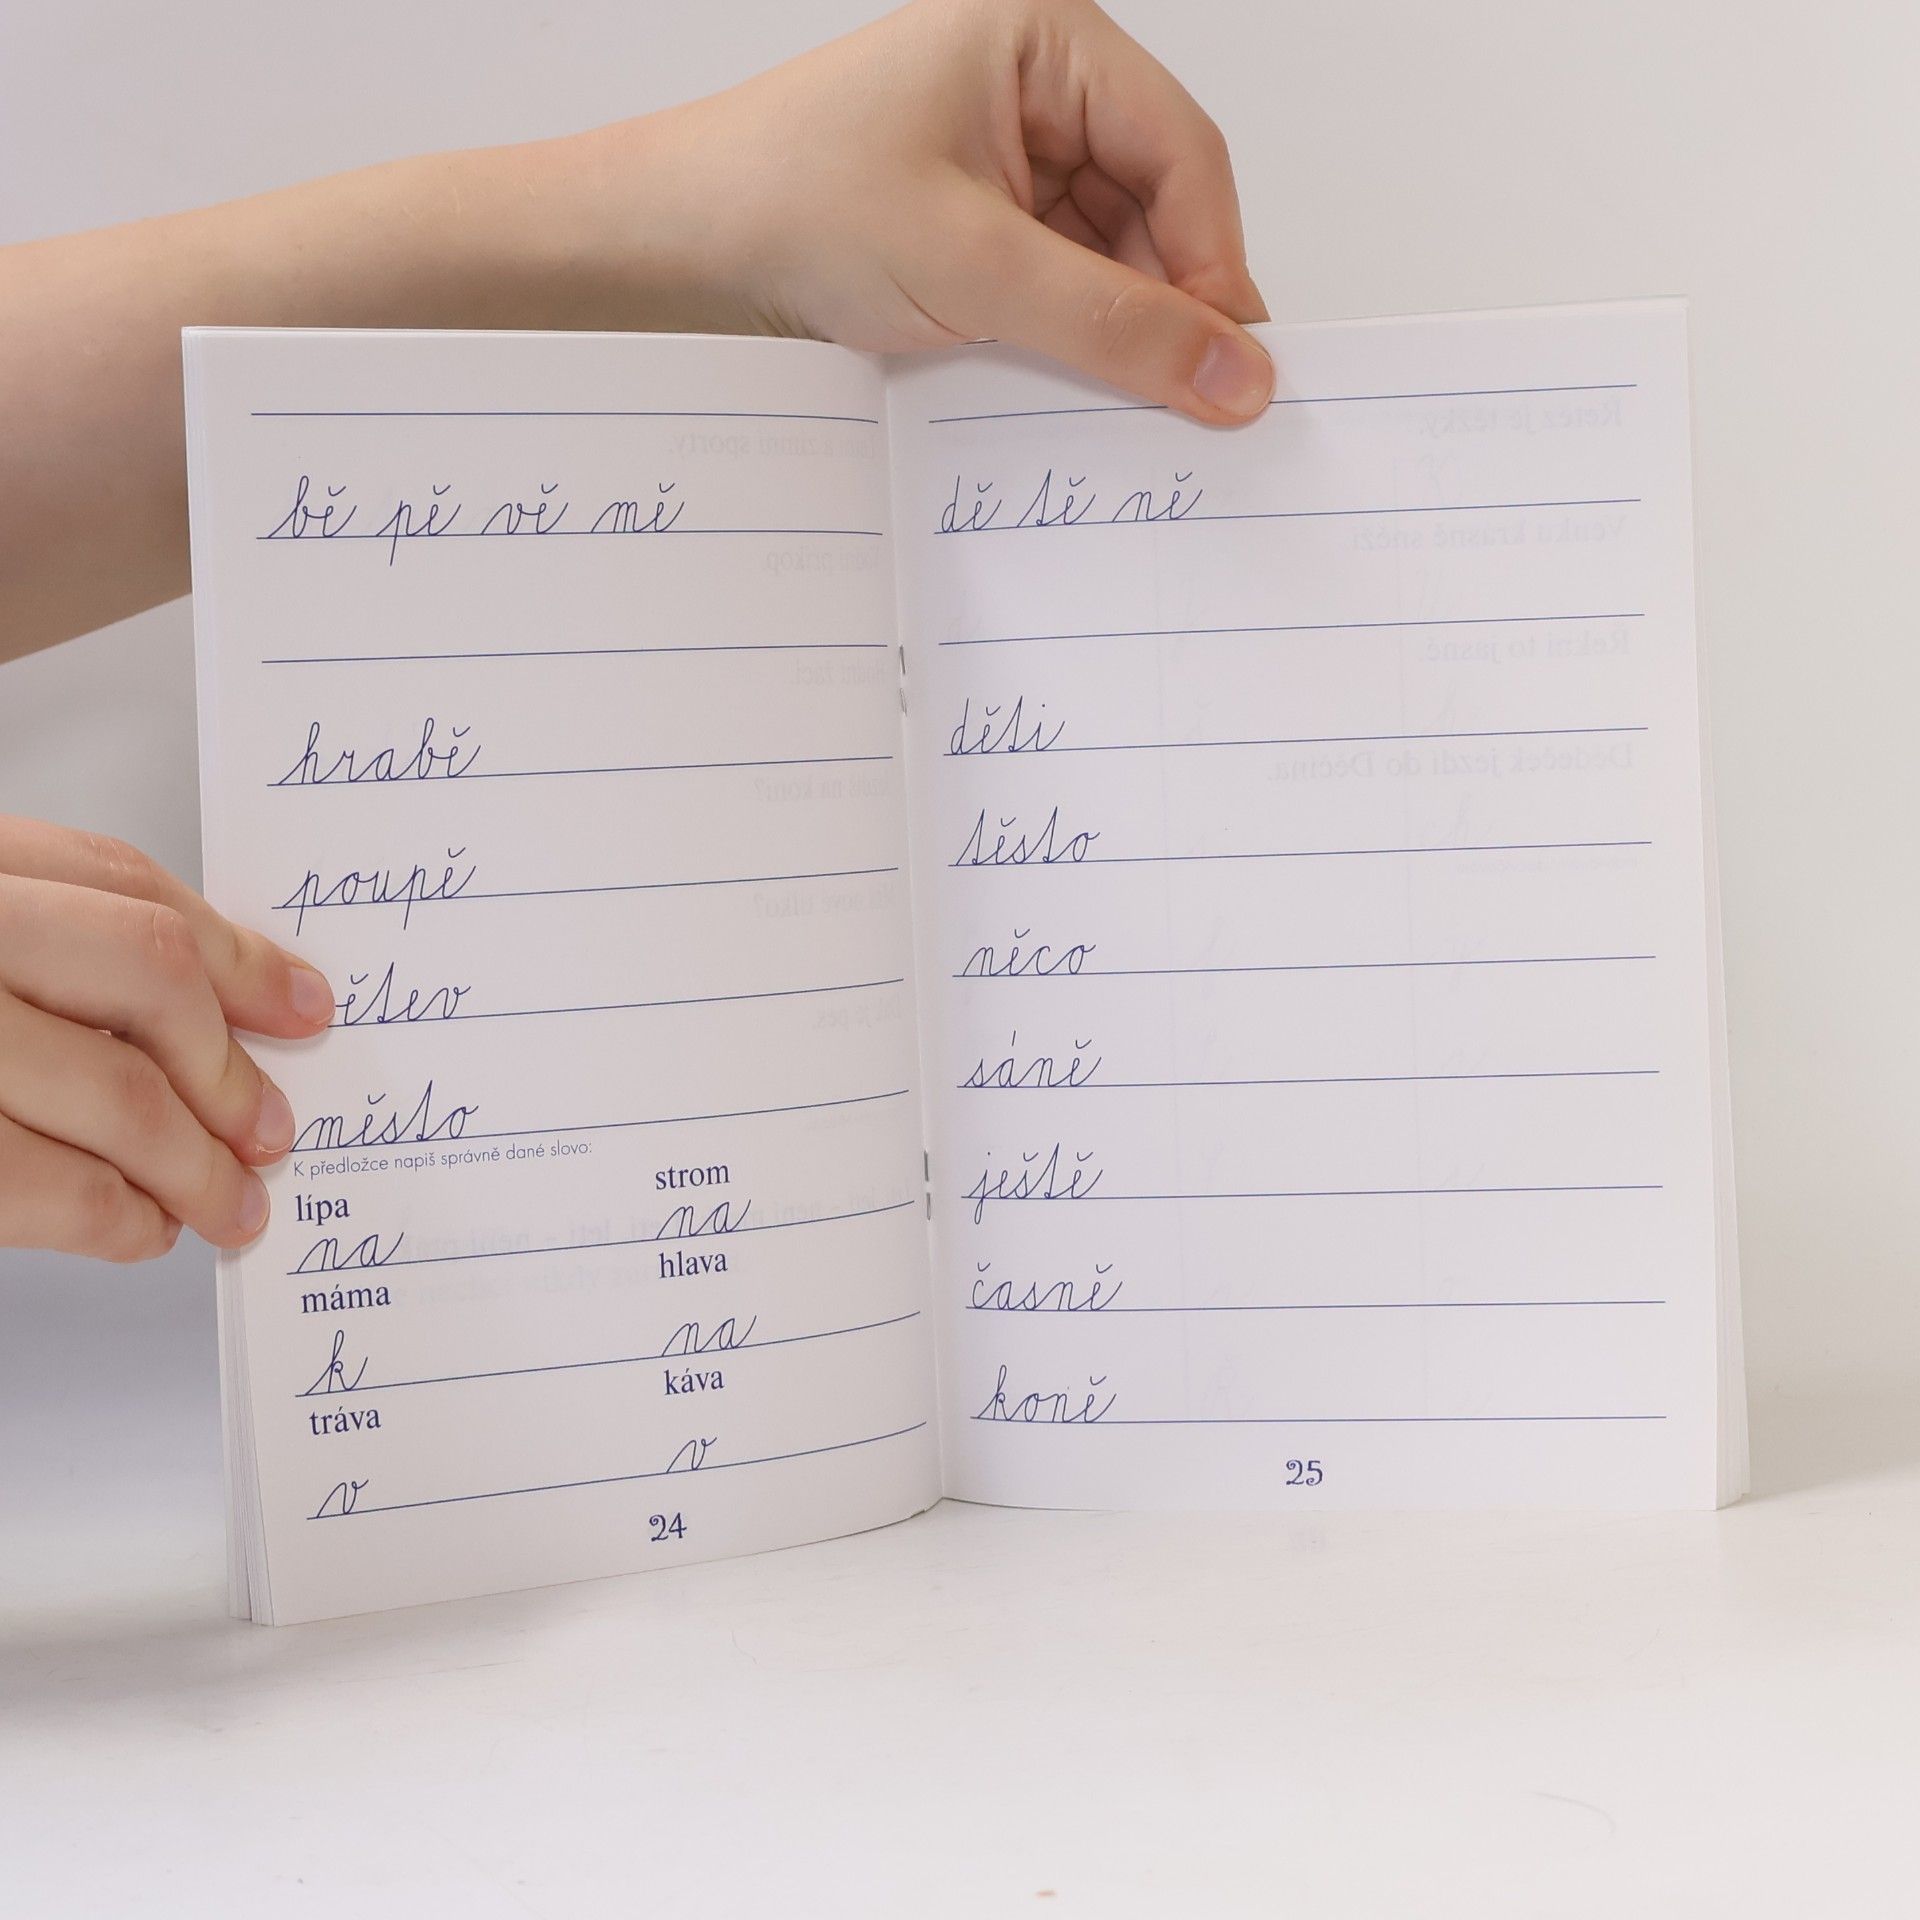 bě pě vě mě
hrabě
poupě
město
K předložce napiš správně dané slovo:
lípa strom
na na
máma hlava
k na
tráva káva
v v
24
dě tě ně
děti
těsto
něco
sáně
ještě
časně
koně
25